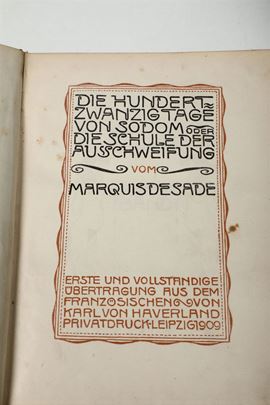 DIE HUNDERT-
ZWANZIG TAGE
VON SODOM ODER
DIE SCHULE DER
AUSSCHWEIFUNG
VOM
MARQUIS DE SADE
ERSTE UND VOLLSTÄNDIGE
ÜBERTRAGUNG AUS DEM
FRANZÖSISCHEN VON
KARL VON HAVERLAND
PRIVATDRUCK·LEIPZIG 1909